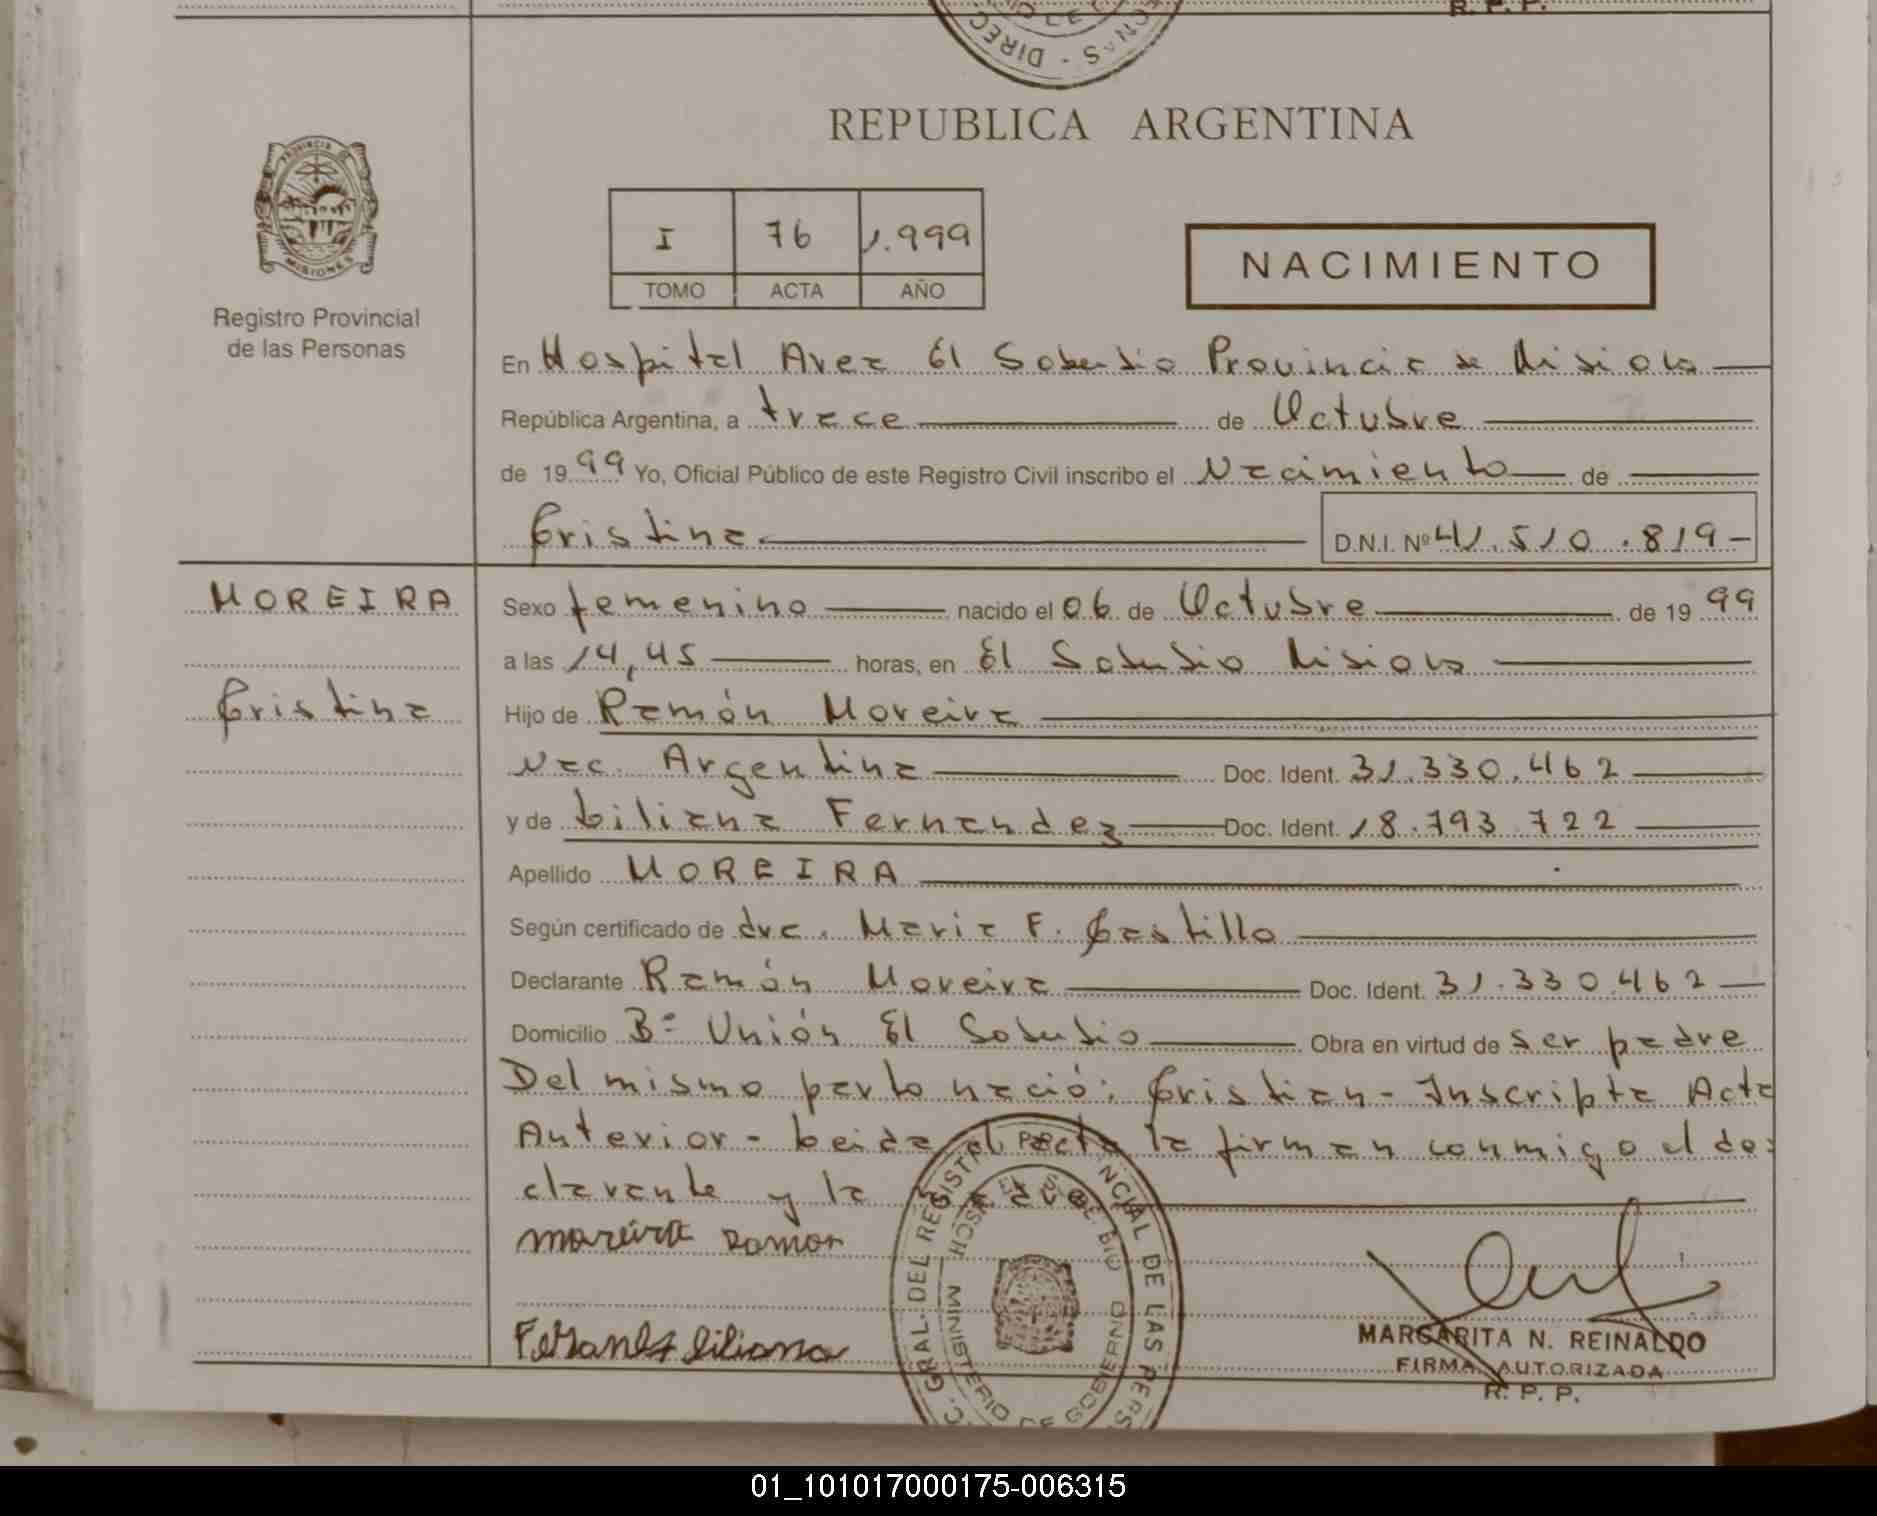 R. P. P.
REPUBLICA ARGENTINA
PROVINCIA DE
MISIONES
Registro Provincial
de las Personas
I 76 1.999
TOMO ACTA AÑO
NACIMIENTO
En Hospital Area El Soberbio Provincia de Misiones
República Argentina, a trece de Octubre
de 1999 Yo, Oficial Público de este Registro Civil inscribo el Nacimiento de
Cristina D.N.I. Nº 41.510.819-
MOREIRA
Cristina
Sexo femenino nacido el 06 de Octubre de 1999
a las 14,45 horas, en El Soberbio Misiones
Hijo de Ramón Moreira
Nac. Argentina Doc. Ident. 31.330.462
y de Liliana Fernandez Doc. Ident. 18.793.722
Apellido MOREIRA
Según certificado de dra. Maria F. Castillo
Declarante Ramón Moreira Doc. Ident. 31.330.462
Domicilio Bº Unión El Soberbio Obra en virtud de ser padre
Del mismo parto nació: Cristian - Inscripta Acta
Anterior - Leida el acta la firman conmigo el de=
clarante y la
moreira Ramon
Fernandez Liliana
GRAL. DEL REGISTRO PROVINCIAL DE LAS PERS
MINISTERIO DE GOBIERNO
MARGARITA N. REINALDO
FIRMA AUTORIZADA
R. P. P.
01_101017000175-006315